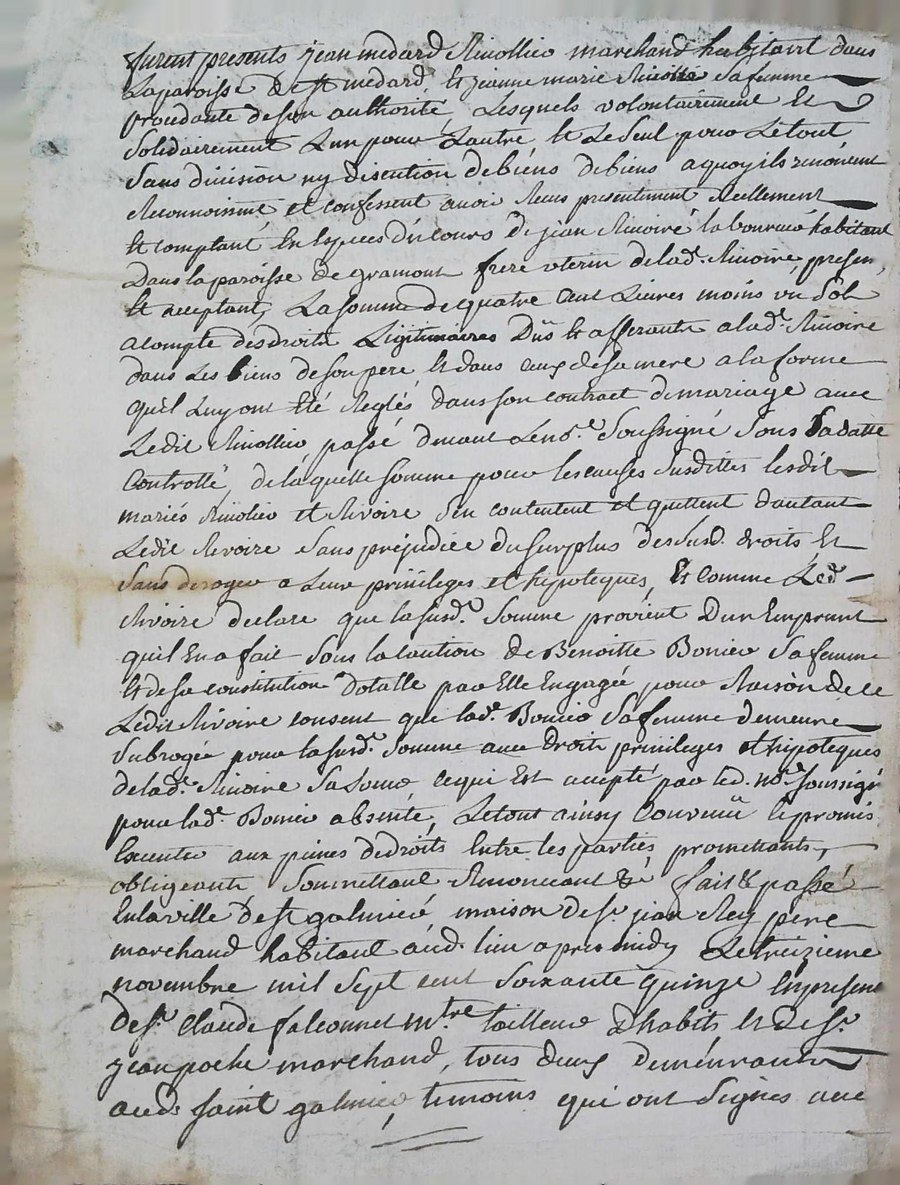 furent presents jean medard Rivollier marchand habitant dans
la paroisse de st medard, et jeanne marie Rivoire sa femme
procedante de son authorité, Lesquels volontairement Et
Solidairement L'un pour L'autre, et Le Seul pour Le tout
Sans division ny discution de biens de biens a quoy ils renoncent
Reconnoissent, et confessent avoir Reçus presentement Reellement
Et comptant, En Especes du cours de jean Rivoire laboureur habitant
Dans la paroisse de gramont frere uterin de lad.e Rivoire, presen,
Et acceptant, La somme de quatre Cent Livres moins un Sol
acompte des droits Légitimaires Dûs Et afferants a lad.e Rivoire
dans Les biens de son pere Et dans ceux de sa mere a la forme
qu'il Luy ont Eté Reglés dans son contract de mariage avec
Ledit Rivollier passé devant Le no.re Soussigné Sous Sa datte
Controllé, de laquelle somme pour les causes Susdittes lesdits
mariés Rivolier et Rivoire s'en contentent et quittent d'autant
Ledit Rivoire Sans préjudice du surplus des susd. droits Et
Sans deroger a Leurs privileges et hipoteques, Et comme Led.
Rivoire declare que la susd.e Somme provient D'un Emprunt
qu'il En a fait Sous la caution de Benoitte Bonier Sa femme
Et de sa constitution Dotalle par Elle Engagée pour Raison de ce
Ledit Rivoire consent que lad.e Bonier Sa femme demeure
Subrogée pour la susd.e Somme aux Droits privileges et hipoteques
de lad.e Rivoire Sa soeur ce qui Est accepté par led. no.re soussigné
pour lad.e Bonier absente, Le tout ainsy Convenû Et promis
Executer aux peines de droits Entre les parties promettants,
obligeants Soumettant Renonceant &c fait & passé
En la ville de st galmier, maison de s.r jean Rey pere
marchand habitant aud. lieu apres midy Le treizieme
novembre mil Sept cent Soixante quinze En presence
de s.r Claude falconnet m.tre tailleur d'habits Et de s.r
jean poche marchand, tous deux demeurants
aud. saint galmier, temoins qui ont Signés avec